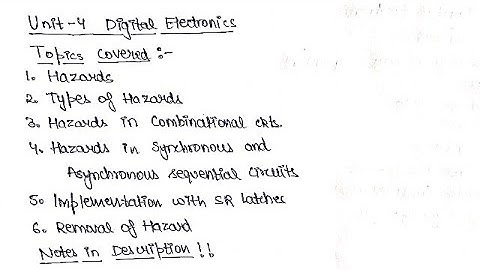 Unit-4 Digital Electronics
Topics Covered :-
1. Hazards
2. Types of Hazards
3. Hazards in Combinational ckts.
4. Hazards in Synchronous and
Asynchronous sequential circuits
5. Implementation with SR latches
6. Removal of Hazard
Notes in Description !!